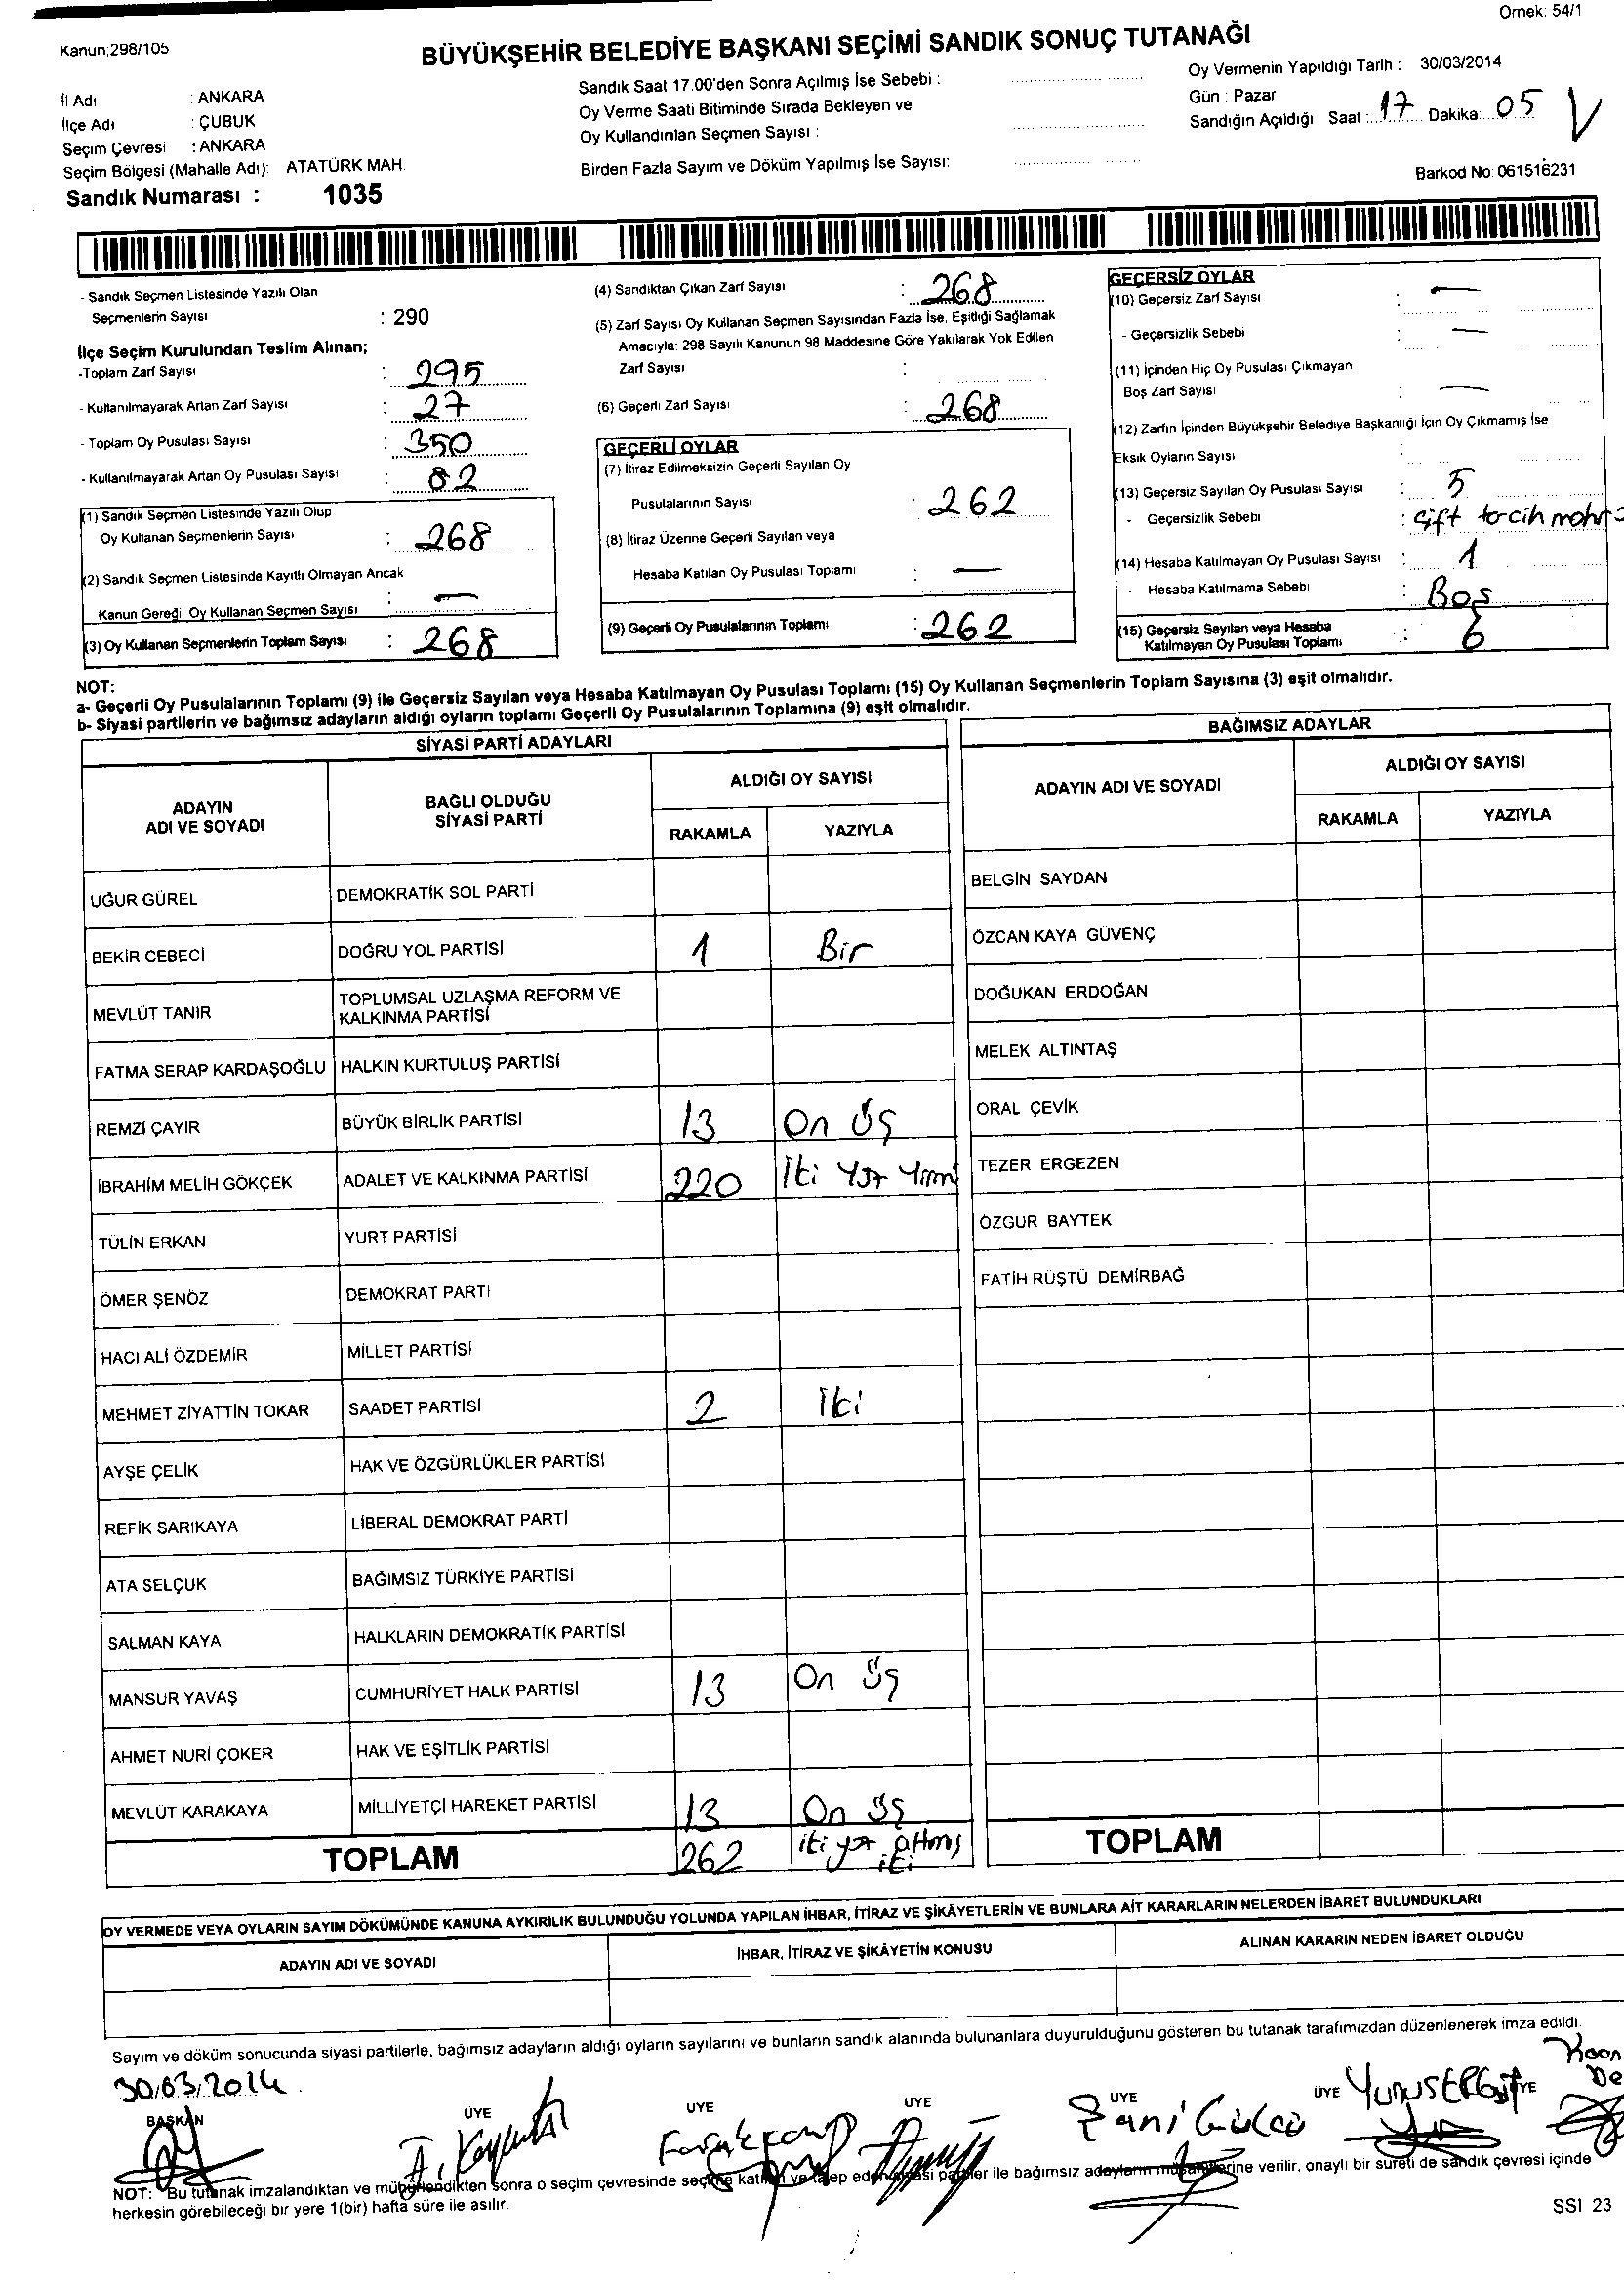 Örnek: 54/1
Kanun;298/105
BÜYÜKŞEHİR BELEDİYE BAŞKANI SEÇİMİ SANDIK SONUÇ TUTANAĞI
İl Adı : ANKARA
İlçe Adı : ÇUBUK
Seçim Çevresi : ANKARA
Seçim Bölgesi (Mahalle Adı): ATATÜRK MAH.
Sandık Numarası : 1035
Sandık Saat 17.00'den Sonra Açılmış İse Sebebi :
Oy Verme Saati Bitiminde Sırada Bekleyen ve
Oy Kullandırılan Seçmen Sayısı :
Birden Fazla Sayım ve Döküm Yapılmış İse Sayısı:
Oy Vermenin Yapıldığı Tarih : 30/03/2014
Gün : Pazar
Sandığın Açıldığı Saat : 17 Dakika: 05
Barkod No: 061516231
- Sandık Seçmen Listesinde Yazılı Olan
Seçmenlerin Sayısı : 290
İlçe Seçim Kurulundan Teslim Alınan;
-Toplam Zarf Sayısı : 295
- Kullanılmayarak Artan Zarf Sayısı : 27
- Toplam Oy Pusulası Sayısı : 350
- Kullanılmayarak Artan Oy Pusulası Sayısı : 82
(1) Sandık Seçmen Listesinde Yazılı Olup
Oy Kullanan Seçmenlerin Sayısı : 268
(2) Sandık Seçmen Listesinde Kayıtlı Olmayan Ancak
Kanun Gereği Oy Kullanan Seçmen Sayısı : —
(3) Oy Kullanan Seçmenlerin Toplam Sayısı : 268
(4) Sandıktan Çıkan Zarf Sayısı : 268
(5) Zarf Sayısı Oy Kullanan Seçmen Sayısından Fazla İse, Eşitliği Sağlamak
Amacıyla: 298 Sayılı Kanunun 98.Maddesine Göre Yakılarak Yok Edilen
Zarf Sayısı :
(6) Geçerli Zarf Sayısı : 268
GEÇERLİ OYLAR
(7) İtiraz Edilmeksizin Geçerli Sayılan Oy
Pusulalarının Sayısı : 262
(8) İtiraz Üzerine Geçerli Sayılan veya
Hesaba Katılan Oy Pusulası Toplamı : —
(9) Geçerli Oy Pusulalarının Toplamı : 262
GEÇERSİZ OYLAR
(10) Geçersiz Zarf Sayısı : —
- Geçersizlik Sebebi : —
(11) İçinden Hiç Oy Pusulası Çıkmayan
Boş Zarf Sayısı : —
(12) Zarfın İçinden Büyükşehir Belediye Başkanlığı İçin Oy Çıkmamış İse
Eksik Oyların Sayısı :
(13) Geçersiz Sayılan Oy Pusulası Sayısı : 5
- Geçersizlik Sebebi : çift tercih
(14) Hesaba Katılmayan Oy Pusulası Sayısı : 1
- Hesaba Katılmama Sebebi : Boş
(15) Geçersiz Sayılan veya Hesaba
Katılmayan Oy Pusulası Toplamı : 6
NOT:
a- Geçerli Oy Pusulalarının Toplamı (9) ile Geçersiz Sayılan veya Hesaba Katılmayan Oy Pusulası Toplamı (15) Oy Kullanan Seçmenlerin Toplam Sayısına (3) eşit olmalıdır.
b- Siyasi partilerin ve bağımsız adayların aldığı oyların toplamı Geçerli Oy Pusulalarının Toplamına (9) eşit olmalıdır.
SİYASİ PARTİ ADAYLARI
ADAYIN ADI VE SOYADI BAĞLI OLDUĞU SİYASİ PARTİ ALDIĞI OY SAYISI
RAKAMLA YAZIYLA
UĞUR GÜREL DEMOKRATİK SOL PARTİ
BEKİR CEBECİ DOĞRU YOL PARTİSİ 1 Bir
MEVLÜT TANIR TOPLUMSAL UZLAŞMA REFORM VE KALKINMA PARTİSİ
FATMA SERAP KARDAŞOĞLU HALKIN KURTULUŞ PARTİSİ
REMZİ ÇAYIR BÜYÜK BİRLİK PARTİSİ 13 On üç
İBRAHİM MELİH GÖKÇEK ADALET VE KALKINMA PARTİSİ 220 İki yüz yirmi
TÜLİN ERKAN YURT PARTİSİ
ÖMER ŞENÖZ DEMOKRAT PARTİ
HACI ALİ ÖZDEMİR MİLLET PARTİSİ
MEHMET ZİYATTİN TOKAR SAADET PARTİSİ 2 İki
AYŞE ÇELİK HAK VE ÖZGÜRLÜKLER PARTİSİ
REFİK SARIKAYA LİBERAL DEMOKRAT PARTİ
ATA SELÇUK BAĞIMSIZ TÜRKİYE PARTİSİ
SALMAN KAYA HALKLARIN DEMOKRATİK PARTİSİ
MANSUR YAVAŞ CUMHURİYET HALK PARTİSİ 13 On üç
AHMET NURİ ÇOKER HAK VE EŞİTLİK PARTİSİ
MEVLÜT KARAKAYA MİLLİYETÇİ HAREKET PARTİSİ 13 On üç
TOPLAM 262 iki yüz altmış iki
BAĞIMSIZ ADAYLAR
ADAYIN ADI VE SOYADI ALDIĞI OY SAYISI
RAKAMLA YAZIYLA
BELGİN SAYDAN
ÖZCAN KAYA GÜVENÇ
DOĞUKAN ERDOĞAN
MELEK ALTINTAŞ
ORAL ÇEVİK
TEZER ERGEZEN
ÖZGÜR BAYTEK
FATİH RÜŞTÜ DEMİRBAĞ
TOPLAM
OY VERMEDE VEYA OYLARIN SAYIM DÖKÜMÜNDE KANUNA AYKIRILIK BULUNDUĞU YOLUNDA YAPILAN İHBAR, İTİRAZ VE ŞİKÂYETLERİN VE BUNLARA AİT KARARLARIN NELERDEN İBARET BULUNDUKLARI
ADAYIN ADI VE SOYADI İHBAR, İTİRAZ VE ŞİKÂYETİN KONUSU ALINAN KARARIN NEDEN İBARET OLDUĞU
Sayım ve döküm sonucunda siyasi partilerle, bağımsız adayların aldığı oyların sayılarını ve bunların sandık alanında bulunanlara duyurulduğunu gösteren bu tutanak tarafımızdan düzenlenerek imza edildi.
30.03.2014
BAŞKAN ÜYE ÜYE ÜYE ÜYE ÜYE ÜYE
NOT: Bu tutanak imzalandıktan ve mühürlendikten sonra o seçim çevresinde seçime katılan ve talep eden siyasi partiler ile bağımsız adayların müşahitlerine verilir, onaylı bir sureti de sandık çevresi içinde
herkesin görebileceği bir yere 1(bir) hafta süre ile asılır.
SSI 23